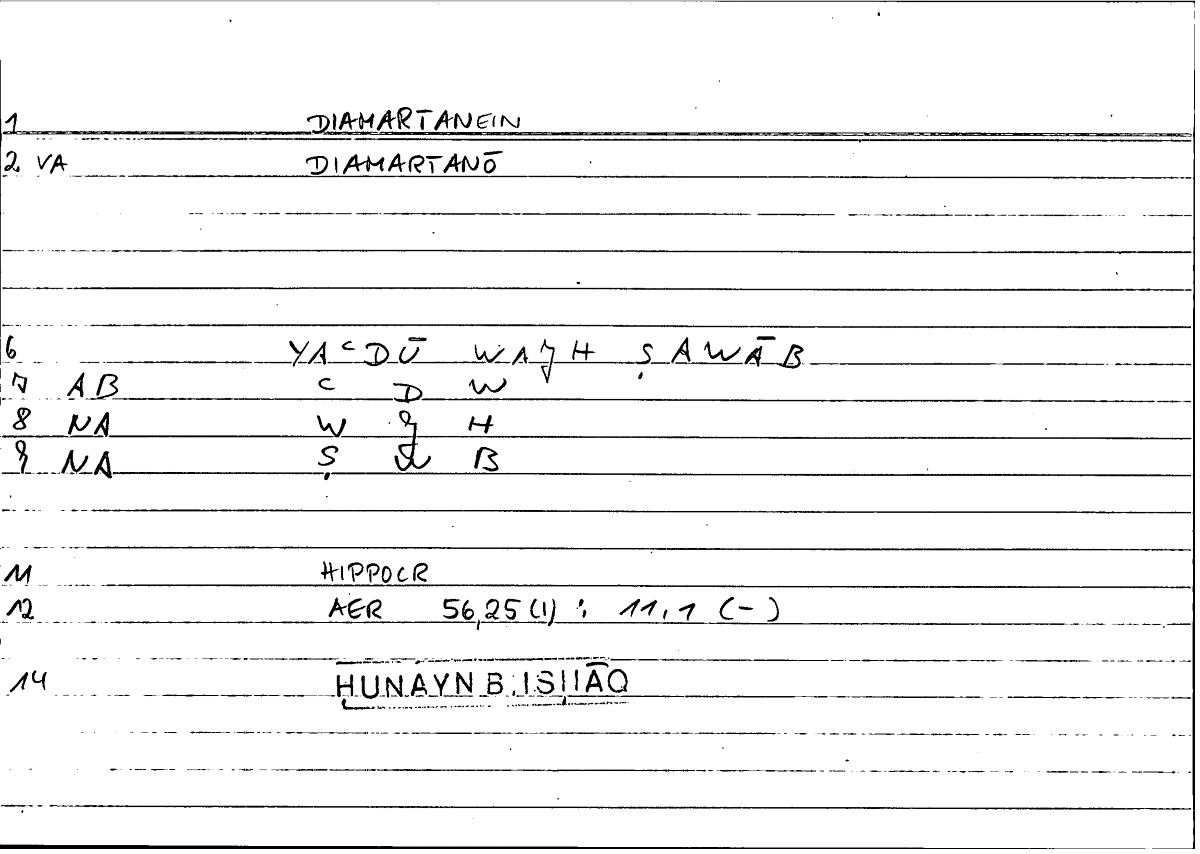 1 DIAMARTANEIN
2 VA DIAMARTANŌ
6 YAʿDŪ WAǦH ṢAWĀB
7 AB ʿ D W
8 NA W Ǧ H
9 NA Ṣ W B
11 HIPPOCR
12 AER 56,25 (1) ; 11,1 (-)
14 ḤUNAYN B. ISḤĀQ